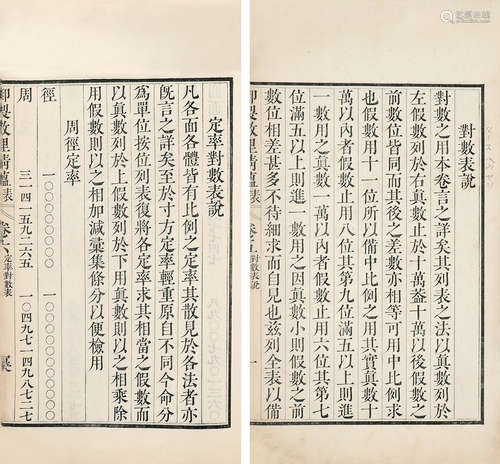 對數表說
對數之用本卷言之詳矣其列表之法以真數列於
左假數列於右真數止於十萬蓋十萬以後假數之
前數位皆同而其後之差數亦相等可用中比例求
也假數用十一位所以備中比例之用其實真數十
萬以內者假數止用八位其第九位滿五以上則進
一數用之真數一萬以內者假數止用六位其第七
位滿五以上則進一數用之因真數小則假數之前
數位相差甚多不待細求而自見也茲列全表以備
御製數理精蘊表 對數表說 一
定率對數表說
凡各面各體皆有比例之定率其散見於各法者亦
既言之詳矣至於寸方定率輕重原自不同今命分
為單位按位列表復將各定率求其相當之假數而
以真數列於上假數列於下用真數則以之相乘除
用假數則以之相加減彙集條分以便檢用
周徑定率
徑 一〇〇〇〇〇〇〇〇 一〇〇〇〇〇〇〇〇〇〇〇
周 三一四一五九二六五 一〇四九七一四九八七二七
御製數理精蘊表 定率對數表